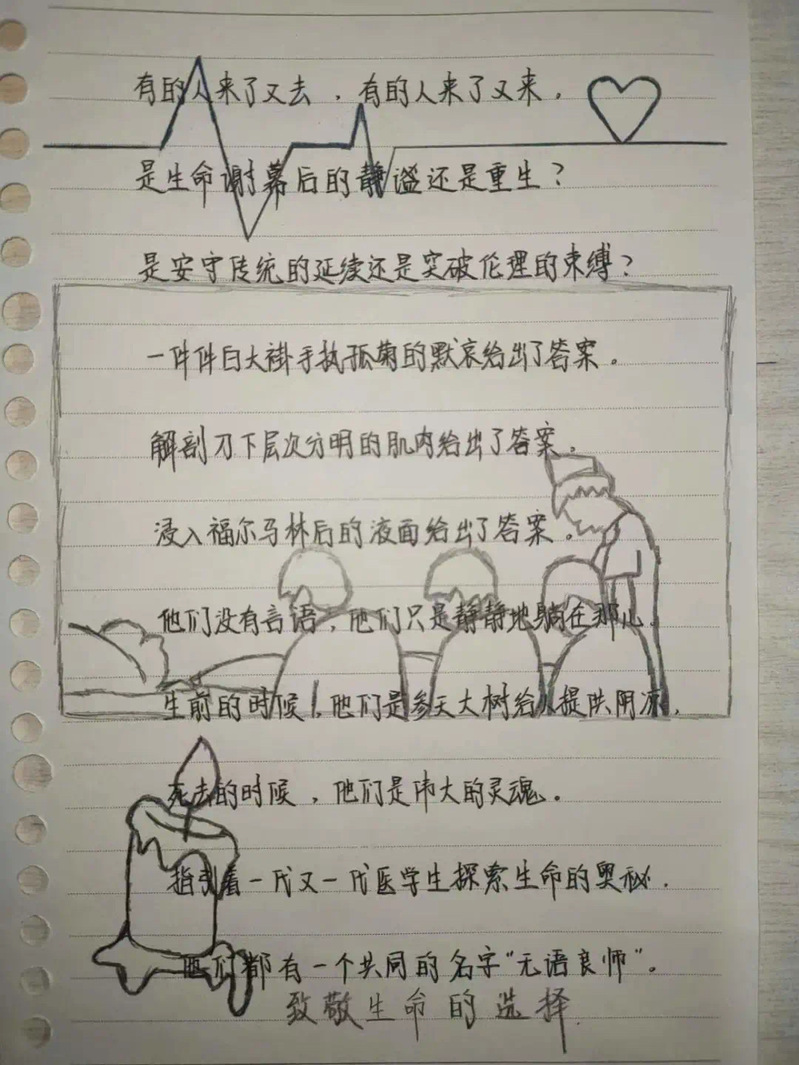 有的人来了又去，有的人来了又来，
是生命谢幕后的静谧还是重生？
是安守传统的延续还是突破伦理的束缚？
一件件白大褂手执孤菊的默哀给出了答案。
解剖刀下层次分明的肌肉给出了答案，
浸入福尔马林后的液面给出了答案。
他们没有言语，他们只是静静地躺在那儿，
生前的时候，他们是参天大树给人提供阴凉，
死去的时候，他们是伟大的灵魂。
指引着一代又一代医学生探索生命的奥秘，
他们都有一个共同的名字“无语良师”。
致敬生命的选择